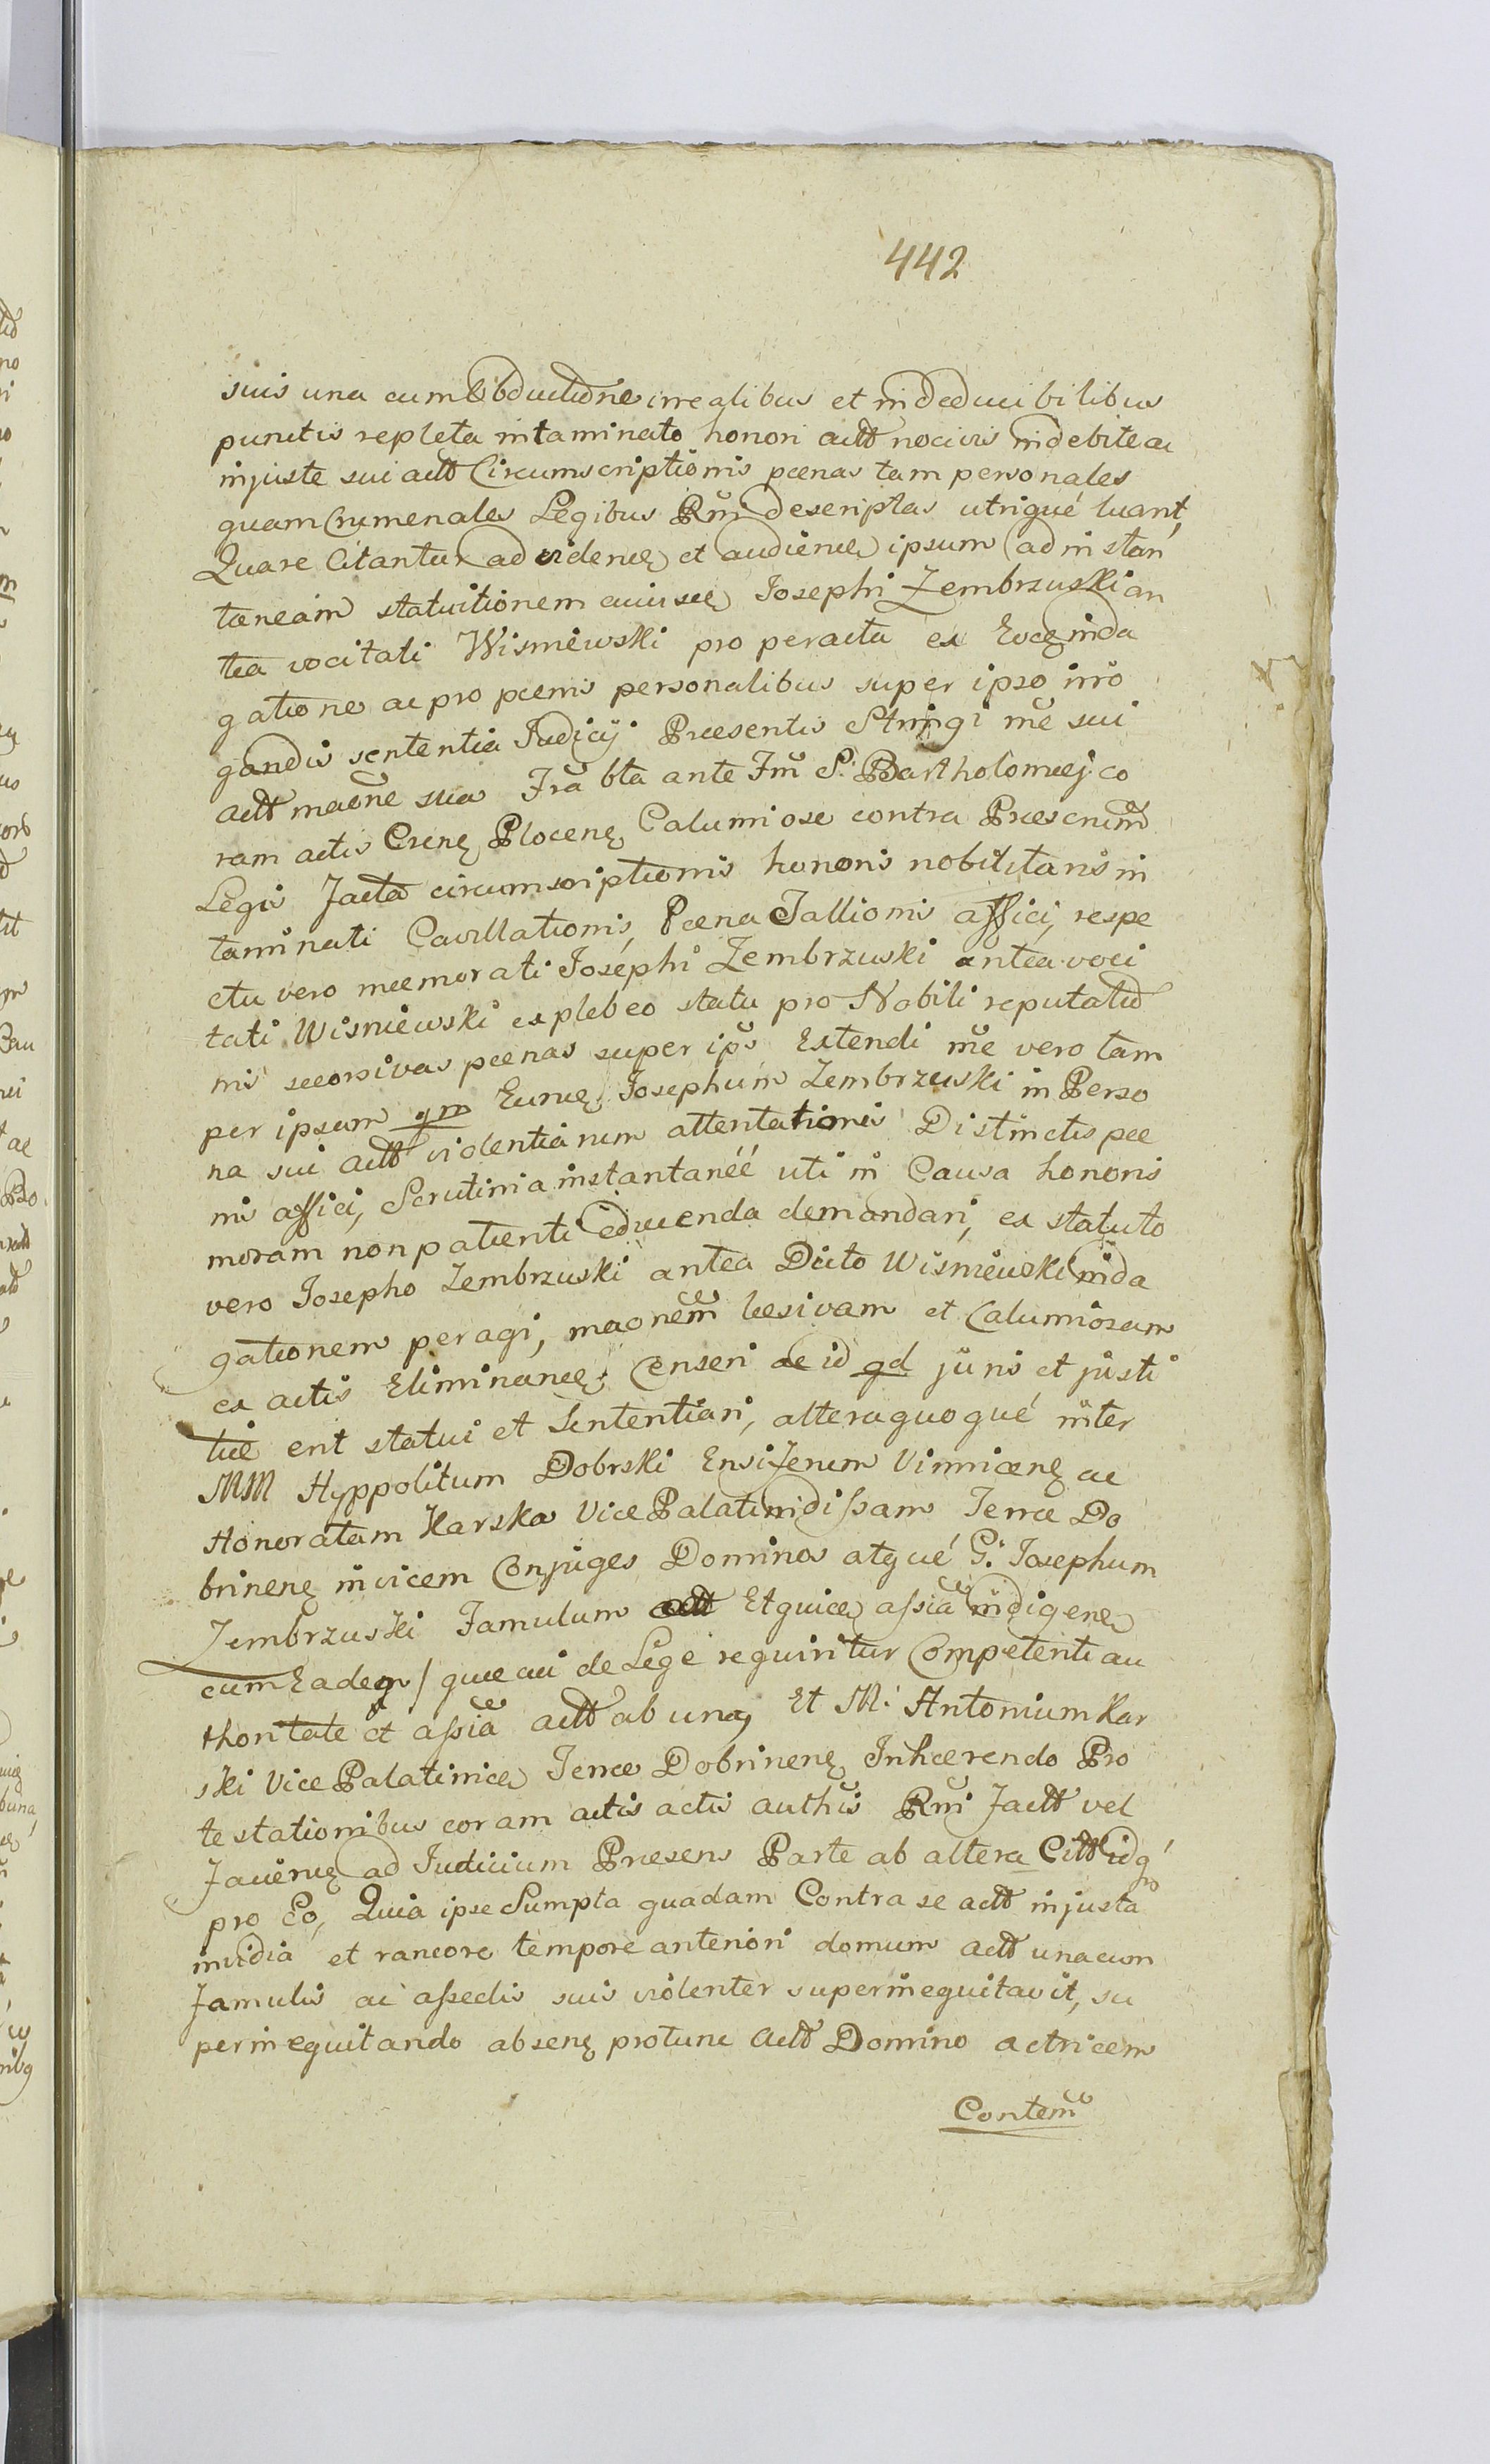 442
suis una cum Obductione irrealibus et indeducibilibus
punctis repleta intaminato honori actt nocivis indebite ac
injuste sui actt Circumscriptionis pœnas tam personales
quam Crumenales Legibus Rni descriptas utrique luant,
Quare Citantur ad videnę et audienę ipsum ad instan
taneam statuitionem Josephi Zembrzuski an
tea vocitati Wisniewski pro peracta ex Eoc inda
gatione ac pro pœnis personalibus super ipso irro
gandis sententia Judicij Præsentis Stringi me sui
actt maone sua Fra bta ante Fm S. Bartholomæj co
ram actis Crenę Plocenę Calumiose contra Præscrium
Legis facta circumscriptionis honoris nobilitaris in
taminati Cavillationis, Pœna Tallionis affici, respe
ctu vero mæmorati Josephi Zembrzuski antea voci
tati Wisniewski ex plebeo statu pro Nobili reputatio
nis seorsivas pœnas super ips Extendi me vero tam
per ipsum qm Eunę Josephum Zembrzuski in Perso
na sui actt violentiarum attentationis Distinctis pœ
nis affici, Scrutinia instantanéé uti in Causa honoris
moram non patienti educenda demandari, ex statuto
vero Josepho Zembrzuski antea Dicto Wisniewski inda
gationem peragi, maonem læsivam et Calumiosam
ex actis Eliminanę Censeri ac id qd juris et justi
tiæ erit statui et Sententiari, altera quoqué inter
MM Hyppolitum Dobrski Ensiferum Vinnicenę ac
Honoratam Karska Vice Palatinidissam Terræ Do
brinenę invicem Conjuges Dominos atqué G. Josephum
Zembrzuski Famulum actt Et quice assia indigenę
cum Eadem / quæ cui de Lege requiritur Competenti au
thoritate et assia actt ab una, Et M. Antonium Kar
ski Vice Palatinicę Terræ Dobrinenę Inhærendo Pro
testationibus coram actis actis authis Rni factt vel
facienę ad Judicium Præsens Parte ab altera Citt idq
pro Eo, Quia ipse Sumpta quadam Contra se actt injusta
invidia et rancore tempore anteriori domum actt una cum
famulis ac assedis suis violenter superinequitavit, su
perinequitando absenę protunc actt Domino actricem
Contem